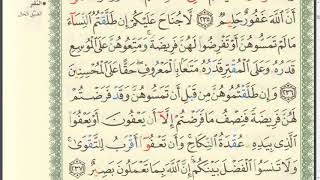 أَنَّ اللَّهَ غَفُورٌ حَلِيمٌ ۝٢٣٥ لَّا جُنَاحَ عَلَيْكُمْ إِن طَلَّقْتُمُ النِّسَاءَ
مَا لَمْ تَمَسُّوهُنَّ أَوْ تَفْرِضُوا لَهُنَّ فَرِيضَةً ۚ وَمَتِّعُوهُنَّ عَلَى الْمُوسِعِ
قَدَرُهُ وَعَلَى الْمُقْتِرِ قَدَرُهُ مَتَاعًا بِالْمَعْرُوفِ ۖ حَقًّا عَلَى الْمُحْسِنِينَ
۝٢٣٦ وَإِن طَلَّقْتُمُوهُنَّ مِن قَبْلِ أَن تَمَسُّوهُنَّ وَقَدْ فَرَضْتُمْ
لَهُنَّ فَرِيضَةً فَنِصْفُ مَا فَرَضْتُمْ إِلَّا أَن يَعْفُونَ أَوْ يَعْفُوَا
الَّذِي بِيَدِهِ عُقْدَةُ النِّكَاحِ ۚ وَأَن تَعْفُوا أَقْرَبُ لِلتَّقْوَىٰ ۚ
وَلَا تَنسَوُا الْفَضْلَ بَيْنَكُمْ ۚ إِنَّ اللَّهَ بِمَا تَعْمَلُونَ بَصِيرٌ ۝٢٣٧